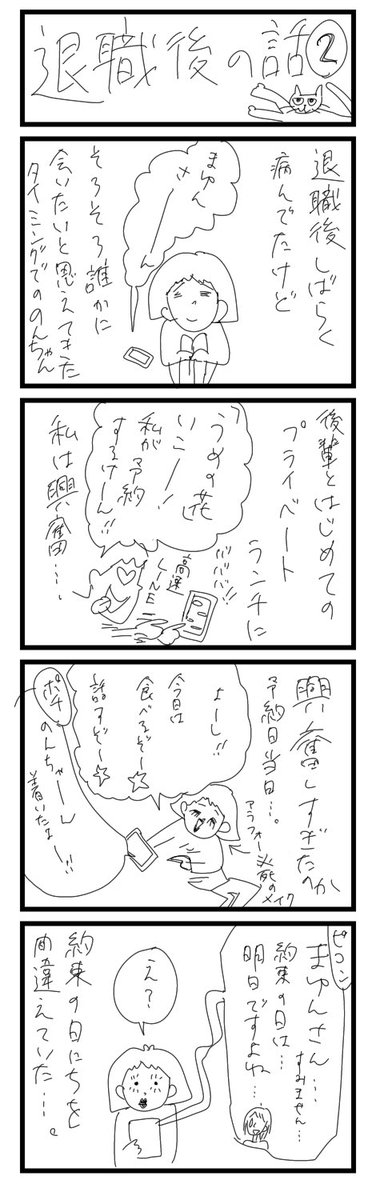 退職後の話②
退職後しばらく
病んでたけど
まゆん
さーん
そろそろ誰かに
会いたいと思えてきた
タイミングでののんちゃん
後輩とはじめての
プライベート
ランチに
「うめの花」
いこー!
私が予約
するけーん!!
ババババ!!
高速
LINE
私は興奮…。
興奮しすぎたのか
予約日当日…。
アラフォー必死の
メイク
よーし!!
今日は
食べるぞー☆
話すぞー☆
ポチ
のんちゃーん
着いたよー!!
ピコン
まゆんさん…
すみません…
約束の日は…
明日ですよね…
え?
約束の日にちを
間違えていた…。